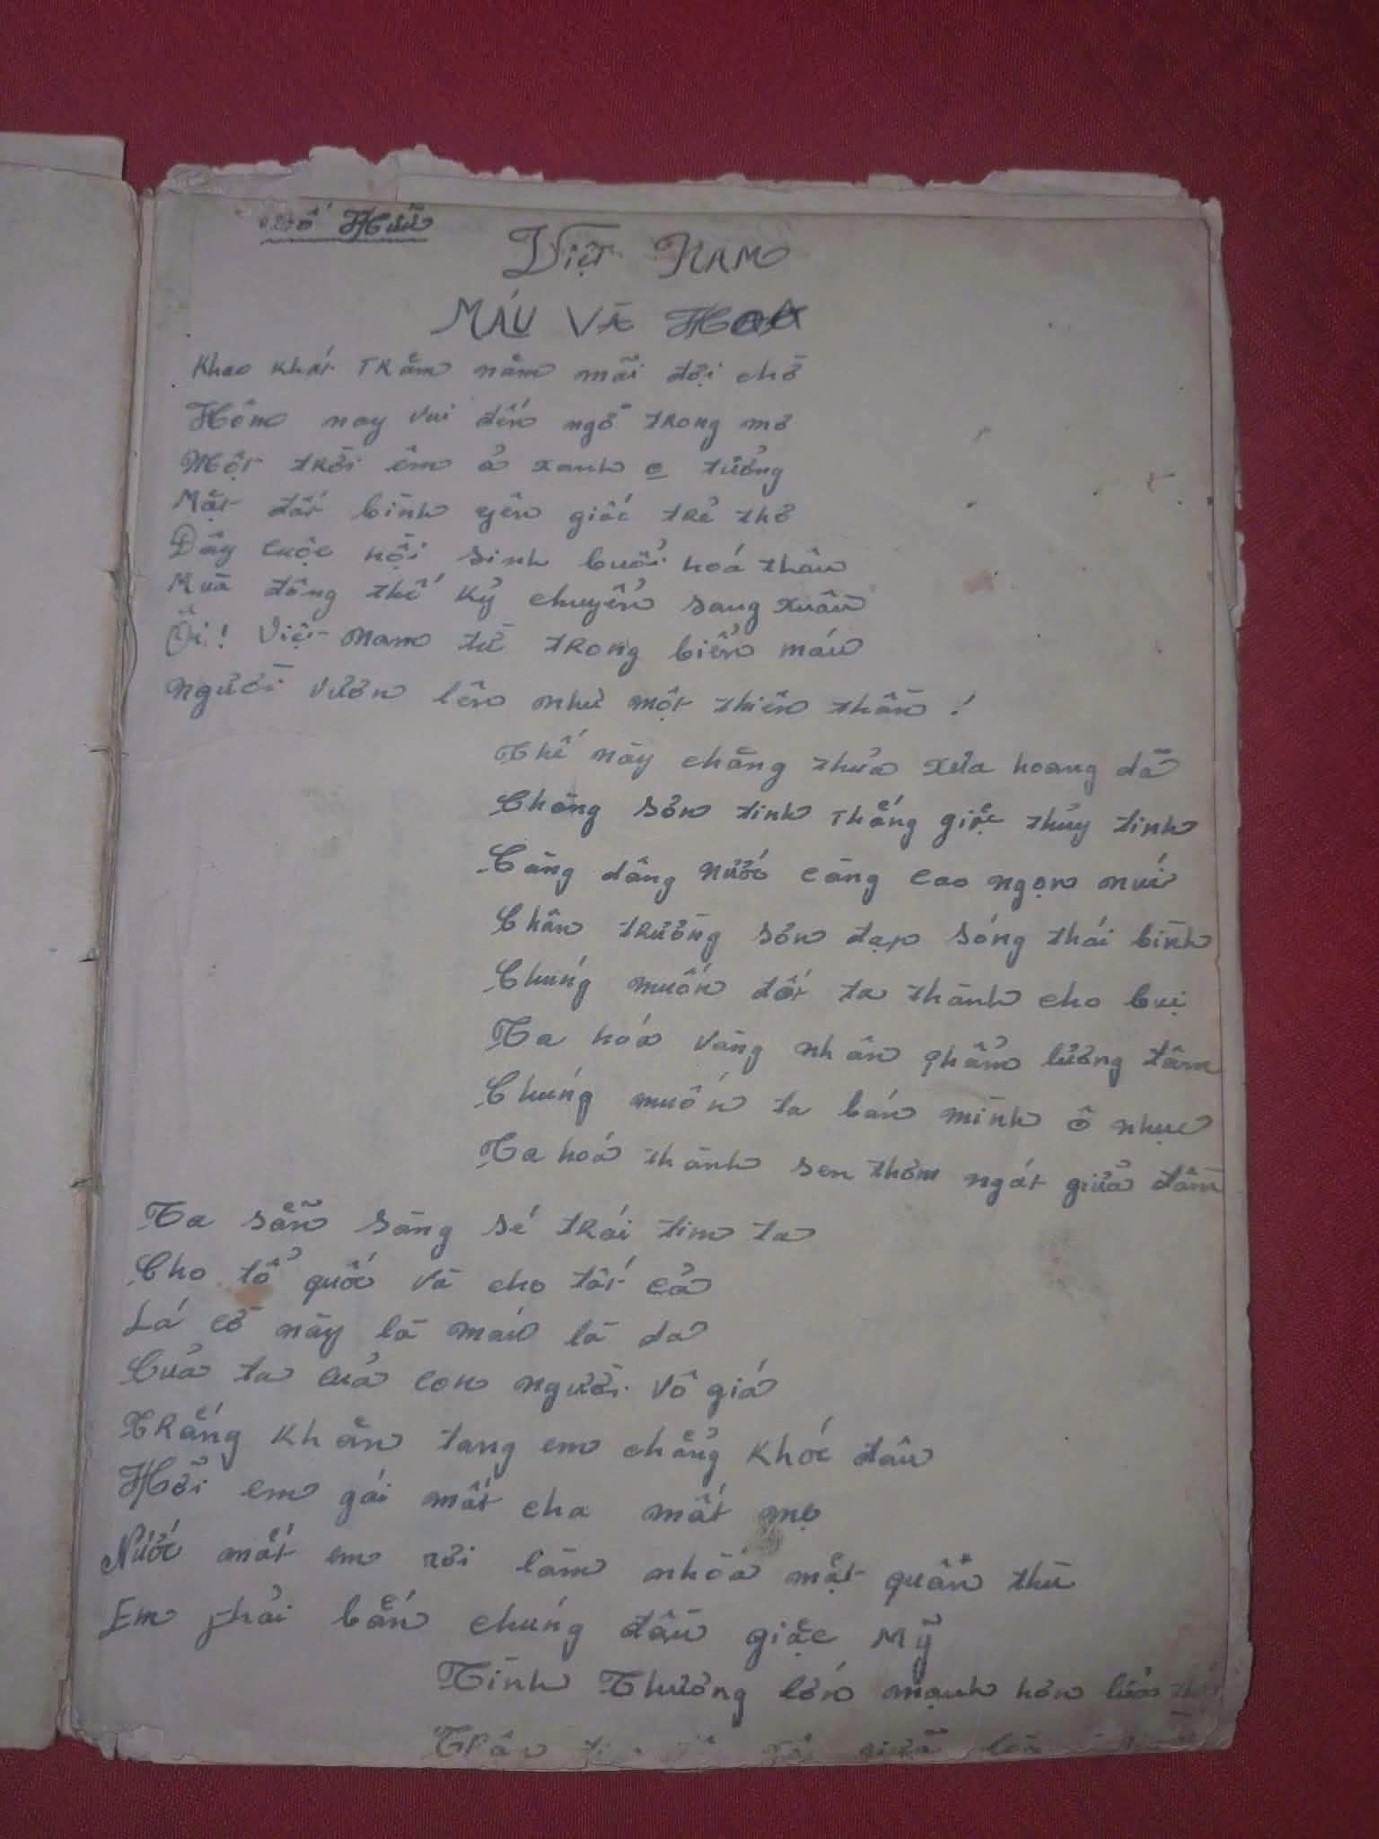 Tố Hữu
Việt Nam
MÁU VÀ HOA
Khao khát trăm năm mãi đợi chờ
Hôm nay vui đến ngỡ trong mơ
Một trời êm ả xanh tưởng
Mặt đất bình yên giấc trẻ thơ
Đây cuộc hồi sinh buổi hoá thân
Mùa đông thế kỷ chuyển sang xuân
Ôi! Việt nam từ trong biển máu
Người vươn lên như một thiên thần!
Thế này chăng thuở xưa hoang dã
Chàng sơn tinh thắng giặc thủy tinh
Càng dâng nước càng cao ngọn núi
Chân trường sơn đạp sóng thái bình
Chúng muốn đốt ta thành cho bụi
Ta hoá vàng nhân phẩm lương tâm
Chúng muốn ta bán mình ô nhục
Ta hoá thành sen thơm ngát giữa đầm
Ta sẵn sàng sé trái tim ta
Cho tổ quốc và cho tất cả
Lá cờ này là máu là da
Của ta của con người vô giá
Trắng khăn tang em chẳng khóc đâu
Hỡi em gái mất cha mất mẹ
Nước mắt em rơi làm nhoà mặt quân thù
Em phải bắn chúng đầu giặc Mỹ
Tình Thương lớn mạnh hơn
Trận giữa